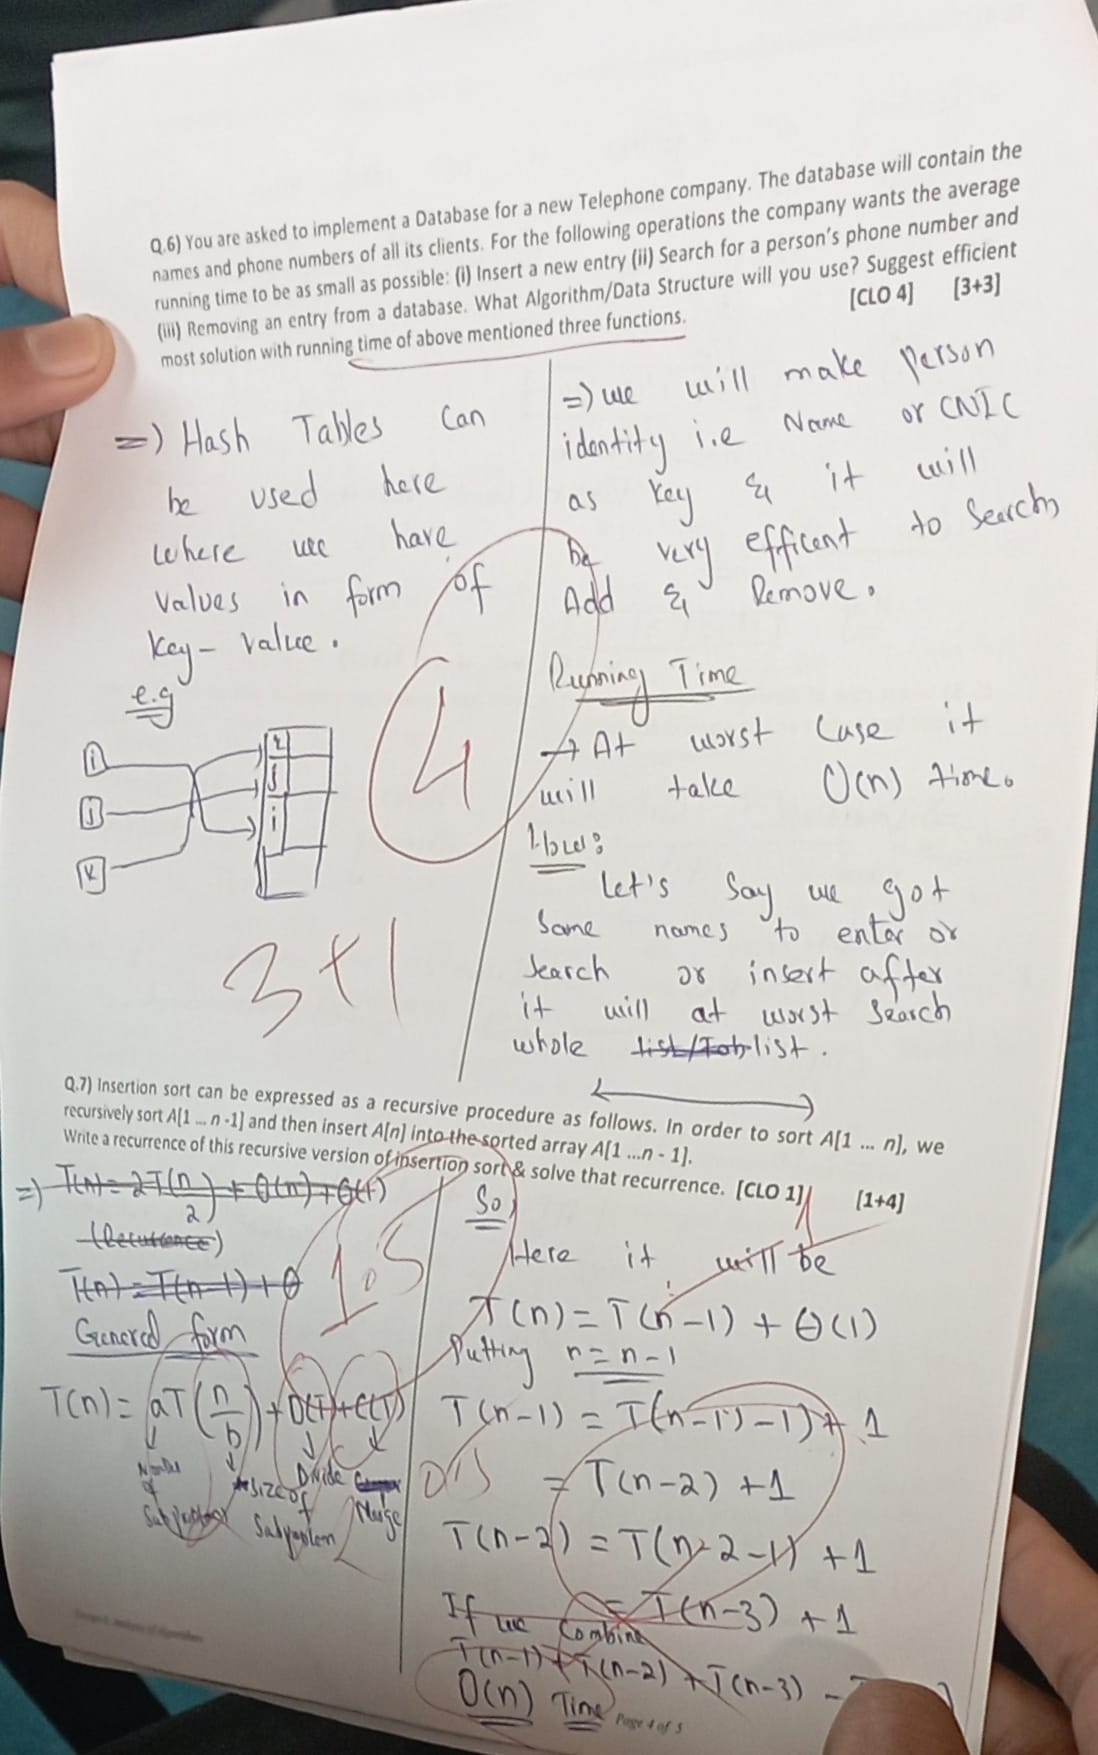 Q.6) You are asked to implement a Database for a new Telephone company. The database will contain the
names and phone numbers of all its clients. For the following operations the company wants the average
running time to be as small as possible: (i) Insert a new entry (ii) Search for a person's phone number and
(iii) Removing an entry from a database. What Algorithm/Data Structure will you use? Suggest efficient
most solution with running time of above mentioned three functions.
[CLO 4] [3+3]
=) Hash Tables Can
be used here
where we have
values in form of
Key-value.
e.g
i
j
K
i
4
3+1
=) we will make person
identity i.e Name or CNIC
as key & it will
be very efficent to Search,
Add & Remove.
Running Time
→ At worst Case it
will take O(n) time.
How:
Let's Say we got
Same names to enter or
Search or insert after
it will at worst Search
whole list/Tab list.
Q.7) Insertion sort can be expressed as a recursive procedure as follows. In order to sort A[1 ... n], we
recursively sort A[1 ... n -1] and then insert A[n] into the sorted array A[1 ...n - 1].
Write a recurrence of this recursive version of insertion sort & solve that recurrence. [CLO 1] [1+4]
=) T(n) = 2T(n/2) + θ(n) + θ(1)
(Recurrence)
T(n) = T(n-1) + θ
General form
T(n) = aT(n/b) +
of
size of
Divide
Merge
1.5
So,
Here it will be
T(n) = T(n-1) + θ(1)
Putting n = n-1
T(n-1) = T(n-1)-1) + 1
= T(n-2) + 1
T(n-2) = T(n-2-1) + 1
= T(n-3) + 1
If we Combine
T(n-1) + T(n-2) + T(n-3) -
O(n) Time
Page 4 of 5